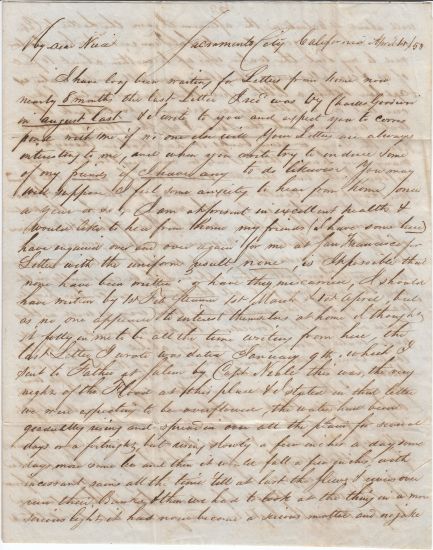 My dear Niece Sacramento City California April 14/53
I have long been waiting for Letters from home now
nearly 8 months the last Letter I rec'd was by Charles Goodwin
in August last. I'll write to you and expect you to corres
pond with me if no one else will. Your Letters are always
interesting to me, and when you write try to induce some
of my friends if I have any to do likewise. You may
well suppose I feel some anxiety to hear from home once
a year or so, I am at present in excellent health &
would like to hear from them my friends I have some here
have inquired over and over again for me at San Francisco for
Letters with the uniform result none, is it possible that
none have been written or have they miscarried, I should
have written by 1st Feb Steamer 1st March & 1st April, but
as no one appeared to interest themselves at home I thought
it folly in me to be all the time writing from here the
last Letter I wrote was dated January 9th, which I
sent to Father at Salem by Capt Noble this was the very
night of the Flood at this place & I stated in that letter
we were expecting to be overflowed, the water had been
gradually rising and spread in over all the plain for several
days or a fortnight, but rising slowly a few inches a day some
days more some less and then it would fall a few inches, with
incessant rains all the time till at last the Rivers
run their Banks & then we had to look at the thing in a more
serious light, it had now become a serious matter and no joke